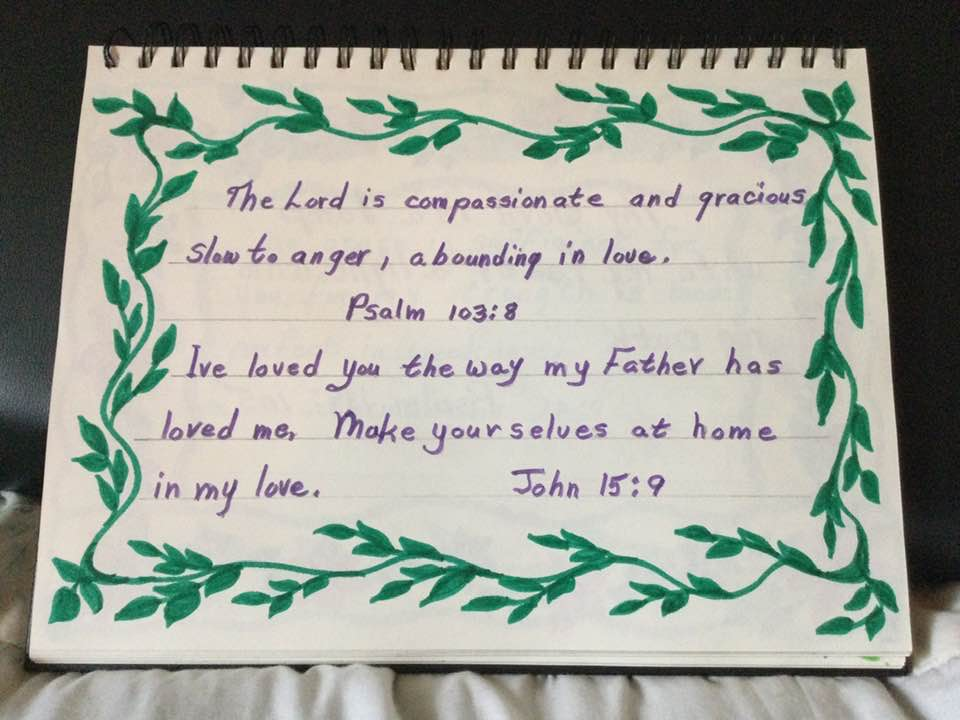 The Lord is compassionate and gracious
slow to anger, abounding in love.
Psalm 103:8
Ive loved you the way my Father has
loved me. Make yourselves at home
in my love. John 15:9